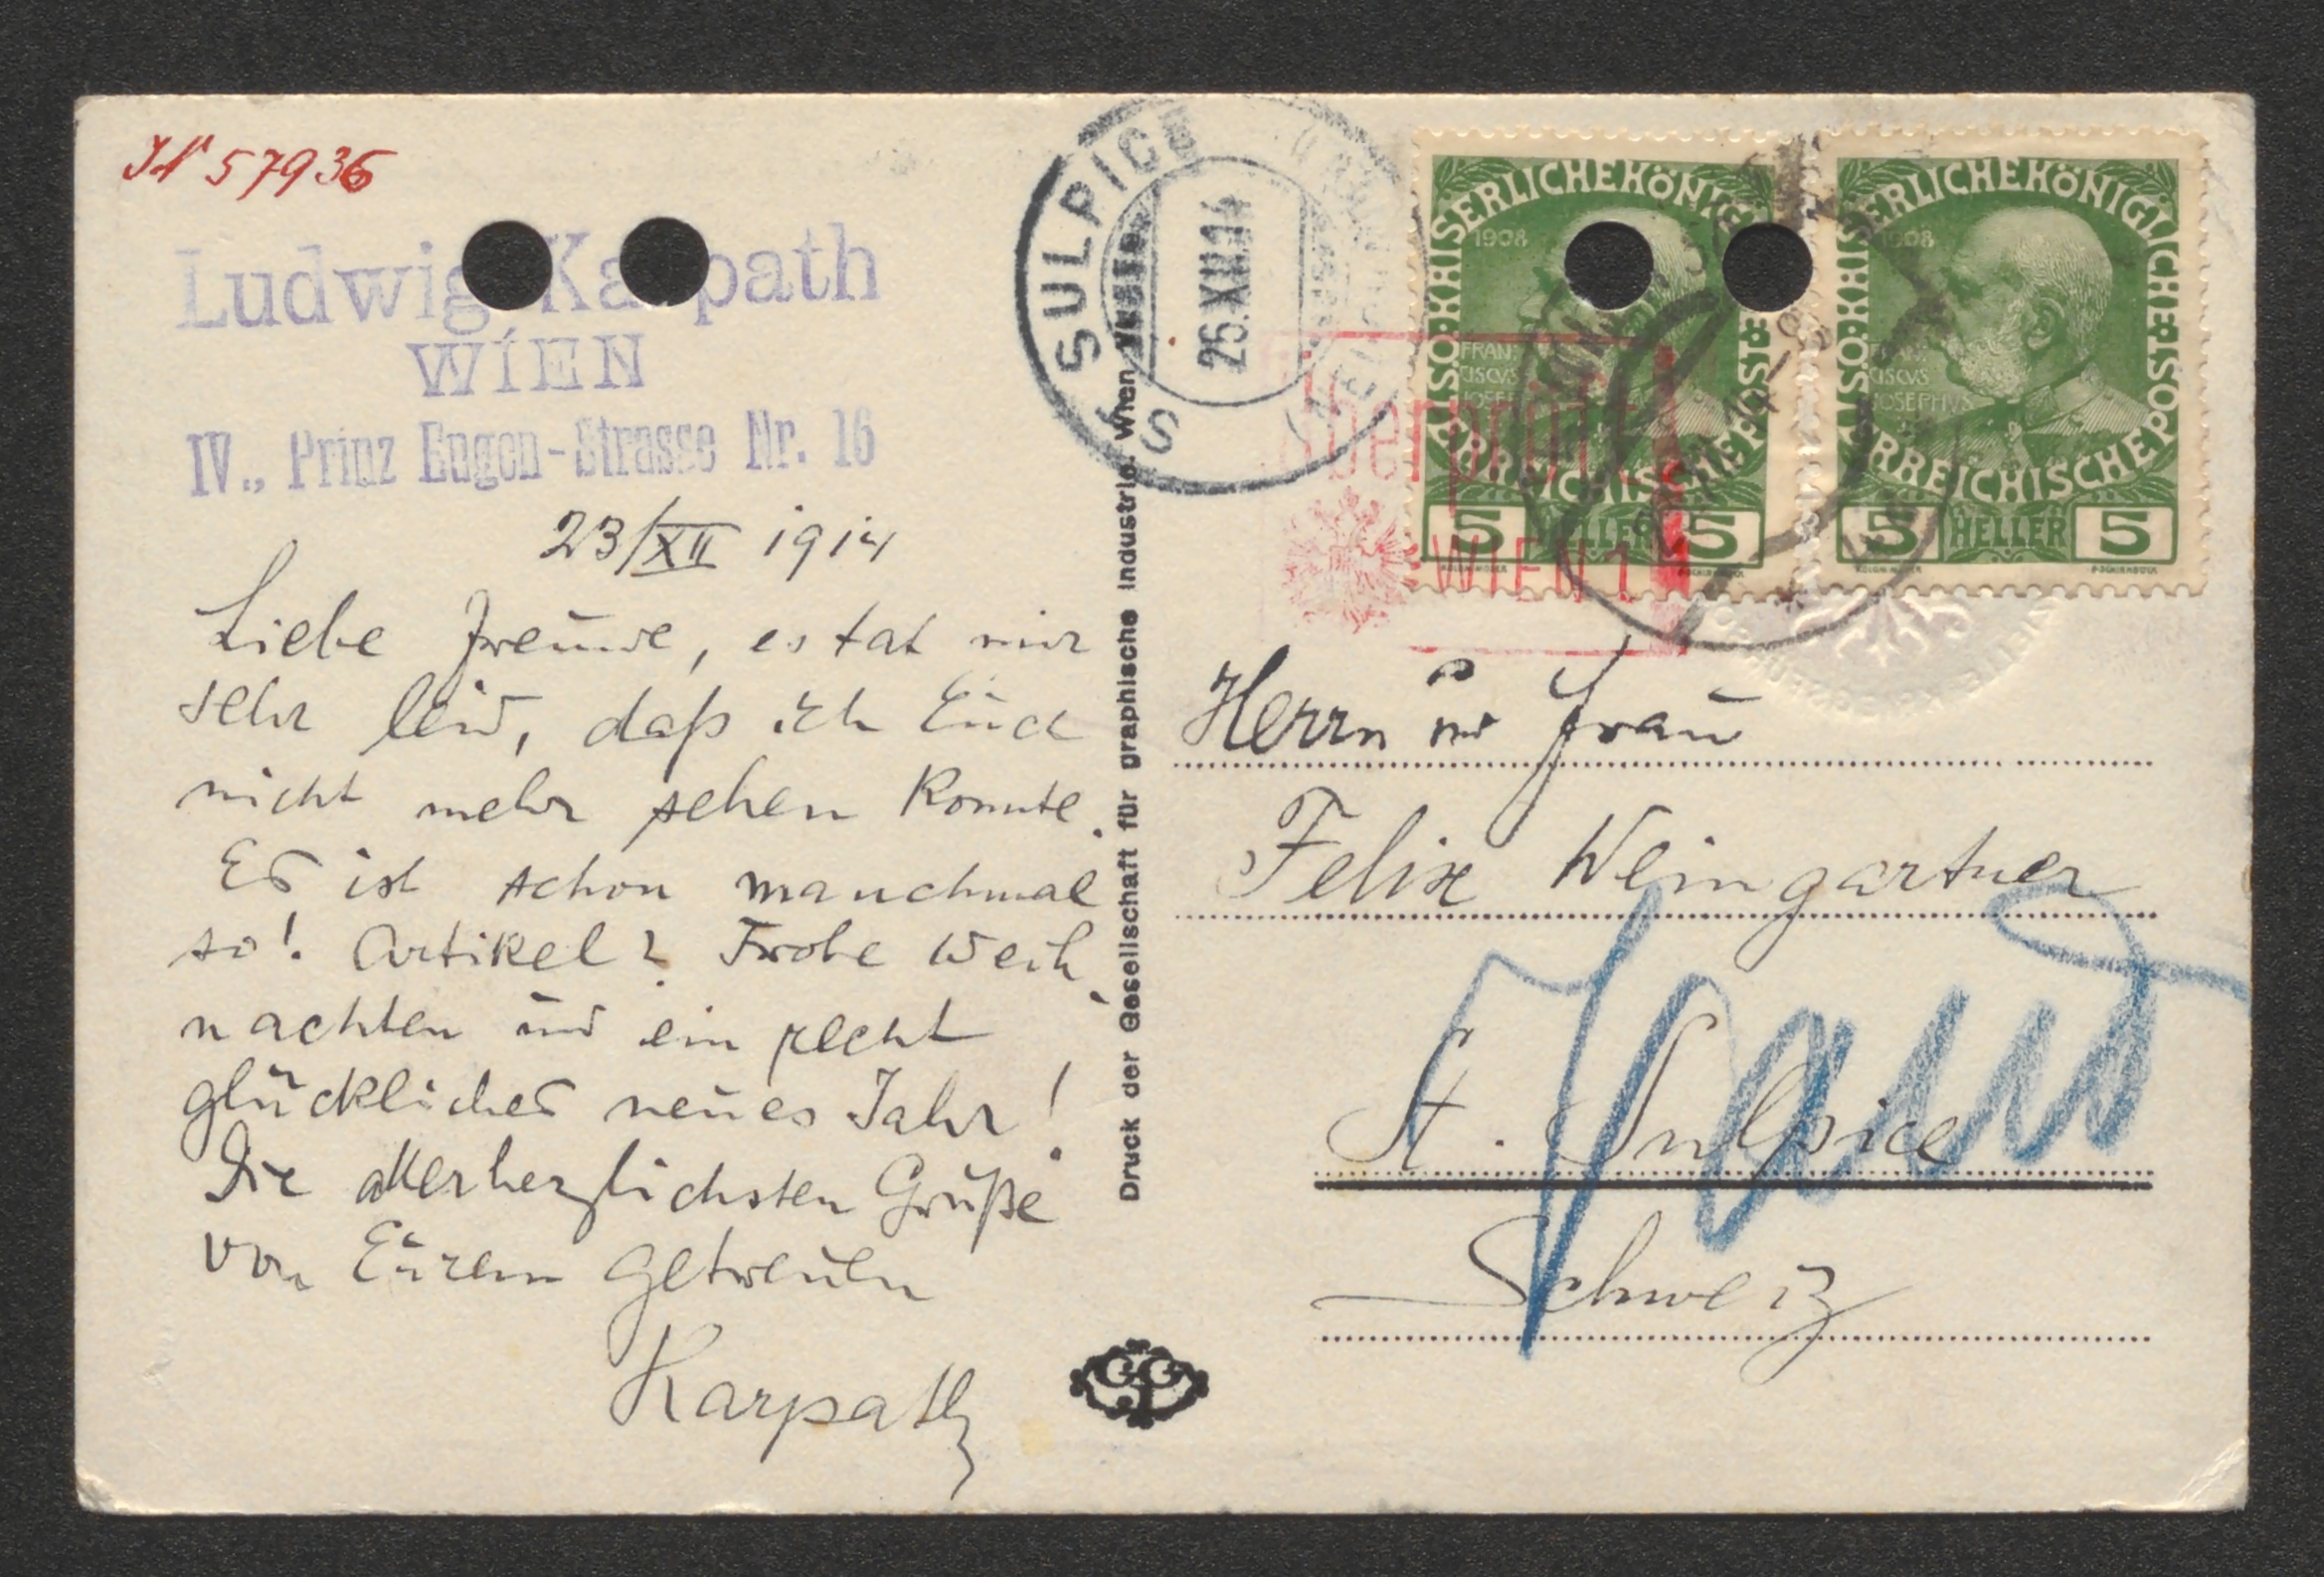 JN 57936
Ludwig Karpath
WIEN
IV., Prinz Eugen-Strasse Nr. 16
23/XII 1914
Liebe Freunde, es tat mir
sehr leid, daß ich Euch
nicht mehr sehen konnte.
Es ist schon manchmal
so! Artikel? Frohe Weih-
nachten und ein recht
glückliches neues Jahr!
Die allerherzlichsten Grüße
von Eurem getreuen
Karpath
Druck der Gesellschaft für graphische Industrie. Wien
SULPICE
26.XII.14
KAISERLICHE KÖNIGLICHE POST
1908
FRAN:
CISCVS
JOSEPHVS
ÖSTERREICHISCHE
5 HELLER 5
KAISERLICHE KÖNIGLICHE POST
1908
FRAN:
CISCVS
JOSEPHVS
ÖSTERREICHISCHE
5 HELLER 5
Überprüft
WIEN 1
Herrn und Frau
Felix Weingartner
St. Sulpice
Vaud
Schweiz